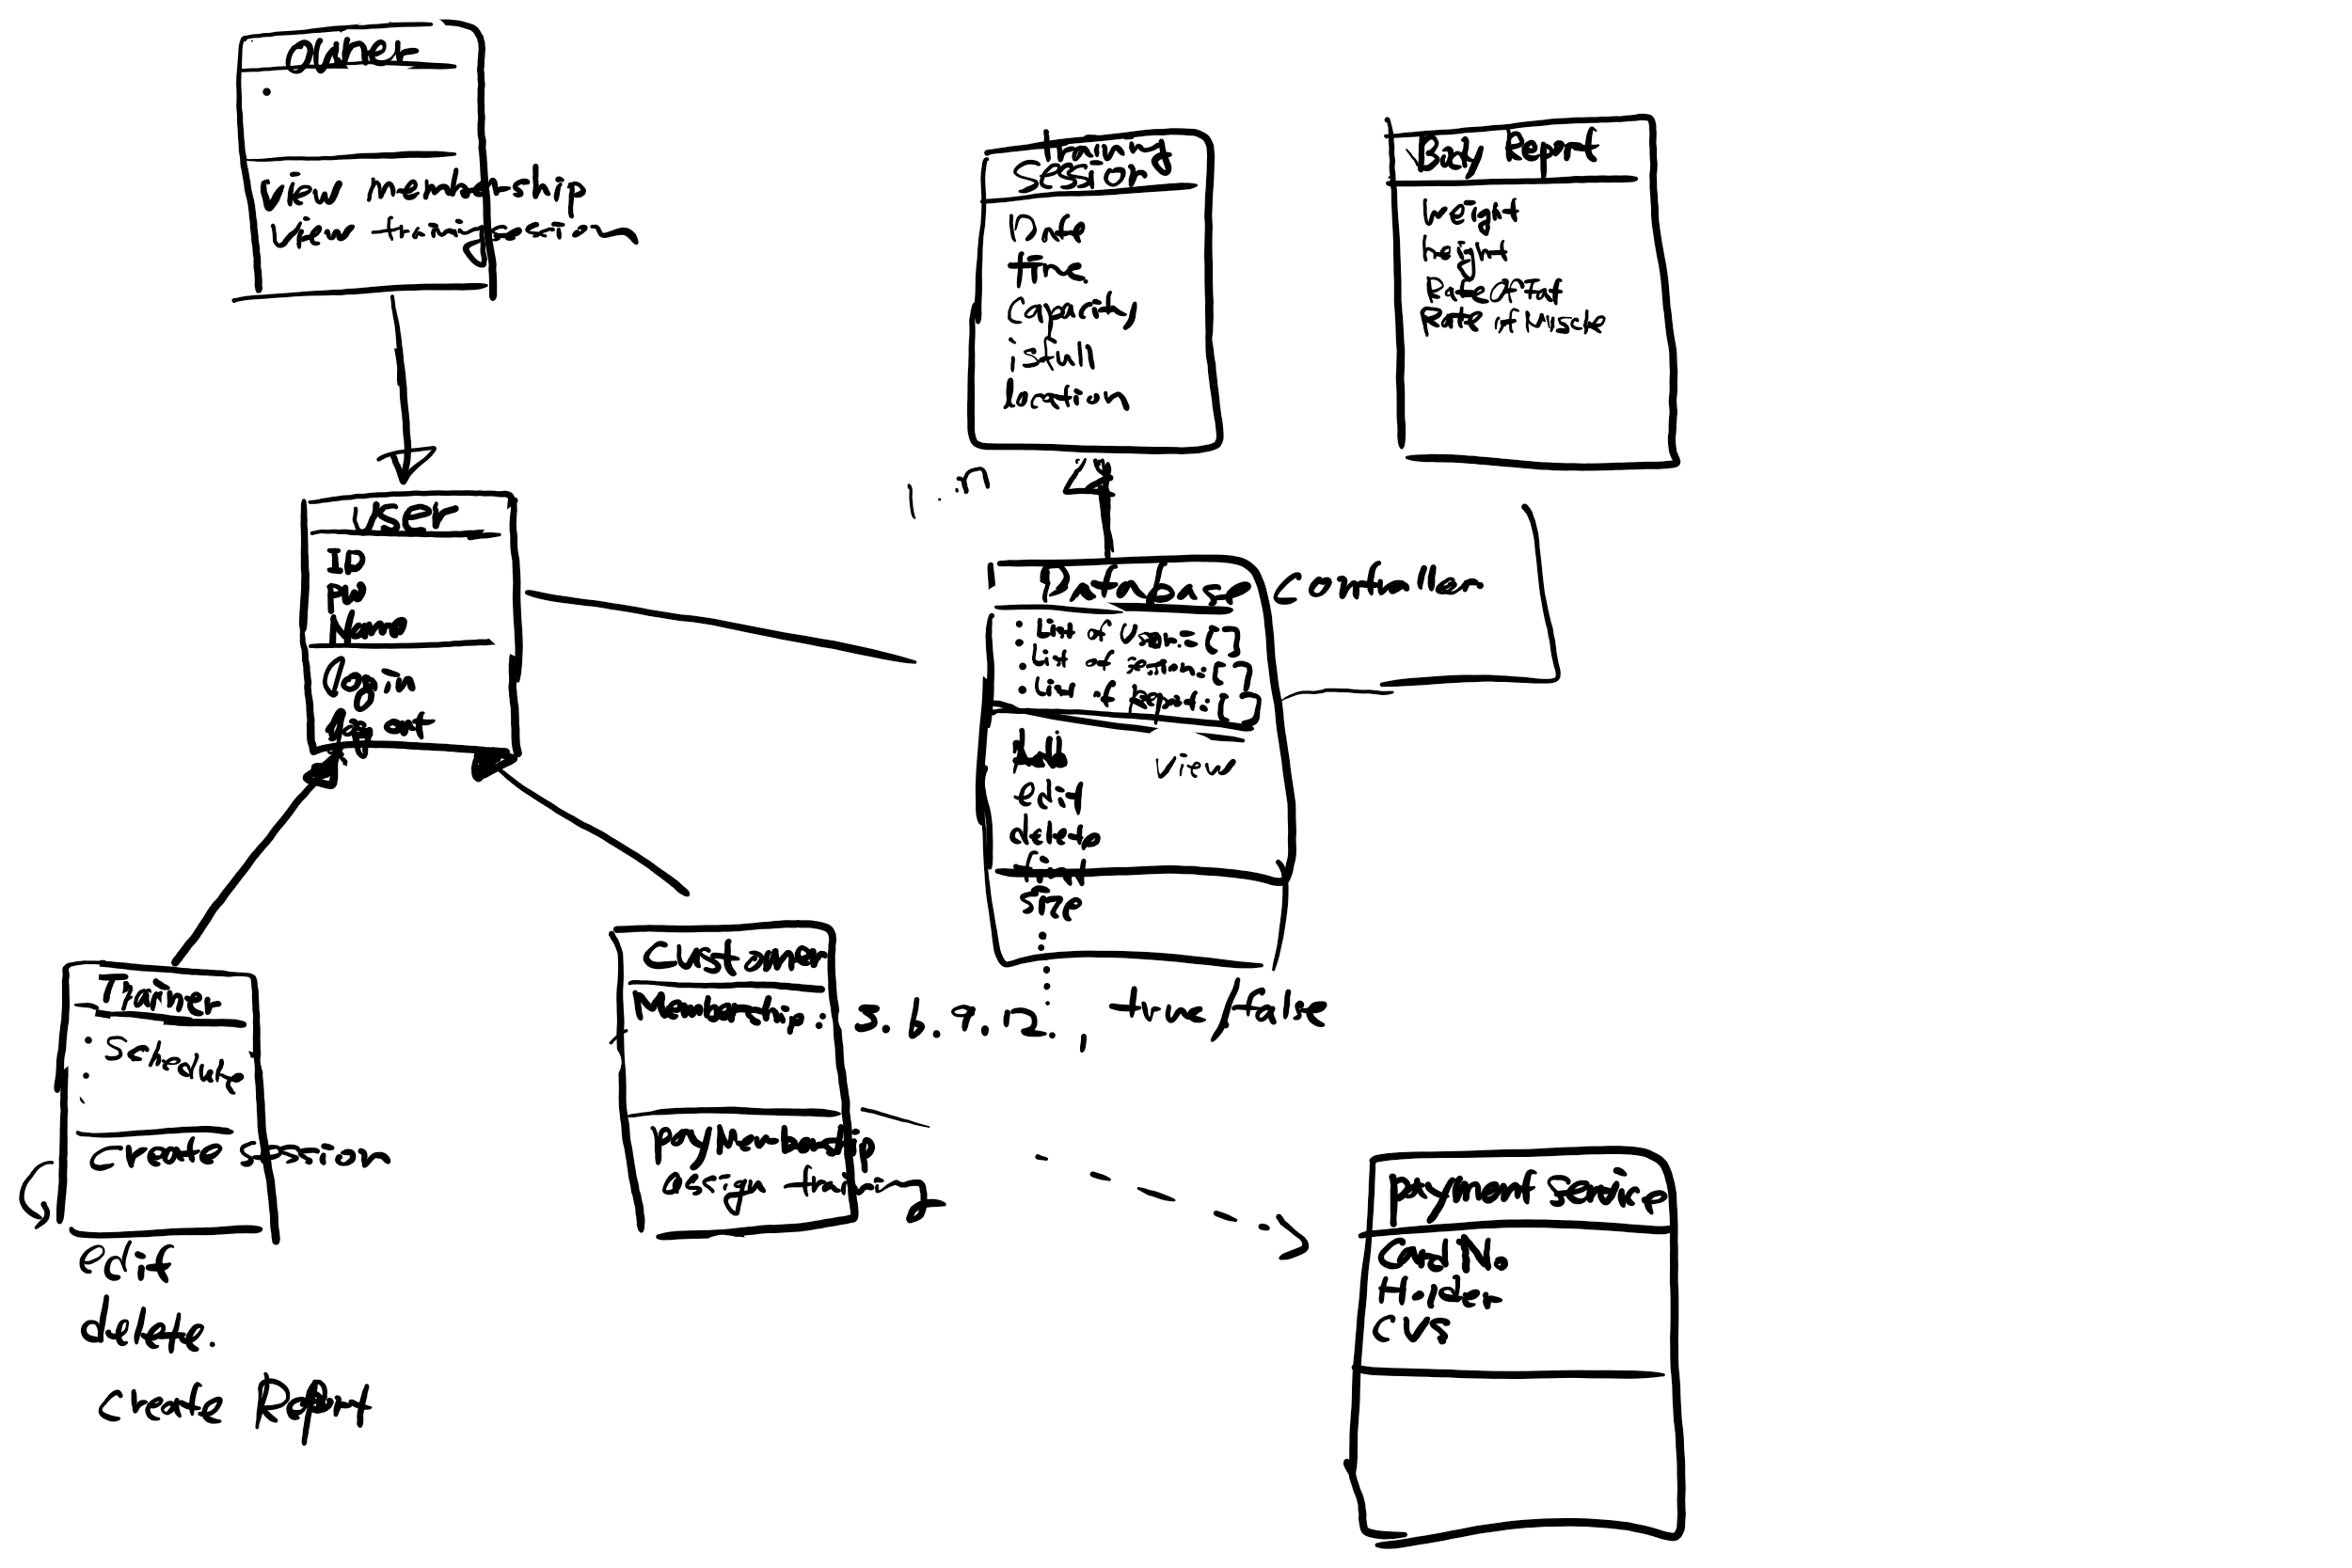 owner
View membership
View training session
training
session
Date
time
capacity
isfull
location
Body Report
weight
height
Rate of fat
Rate of Muscle
1..n
User
ID
PW
Name
Login
Log out
Database
controller
List of User: []
List of session: []
List of Report: []
Add
view
edit
delete
find
size
Trainer
Schedule
create session
edit
delete.
create Report
Customer
Membership: true/false
pay Membership
assign training
payment service
Card No.
Holder
CVS